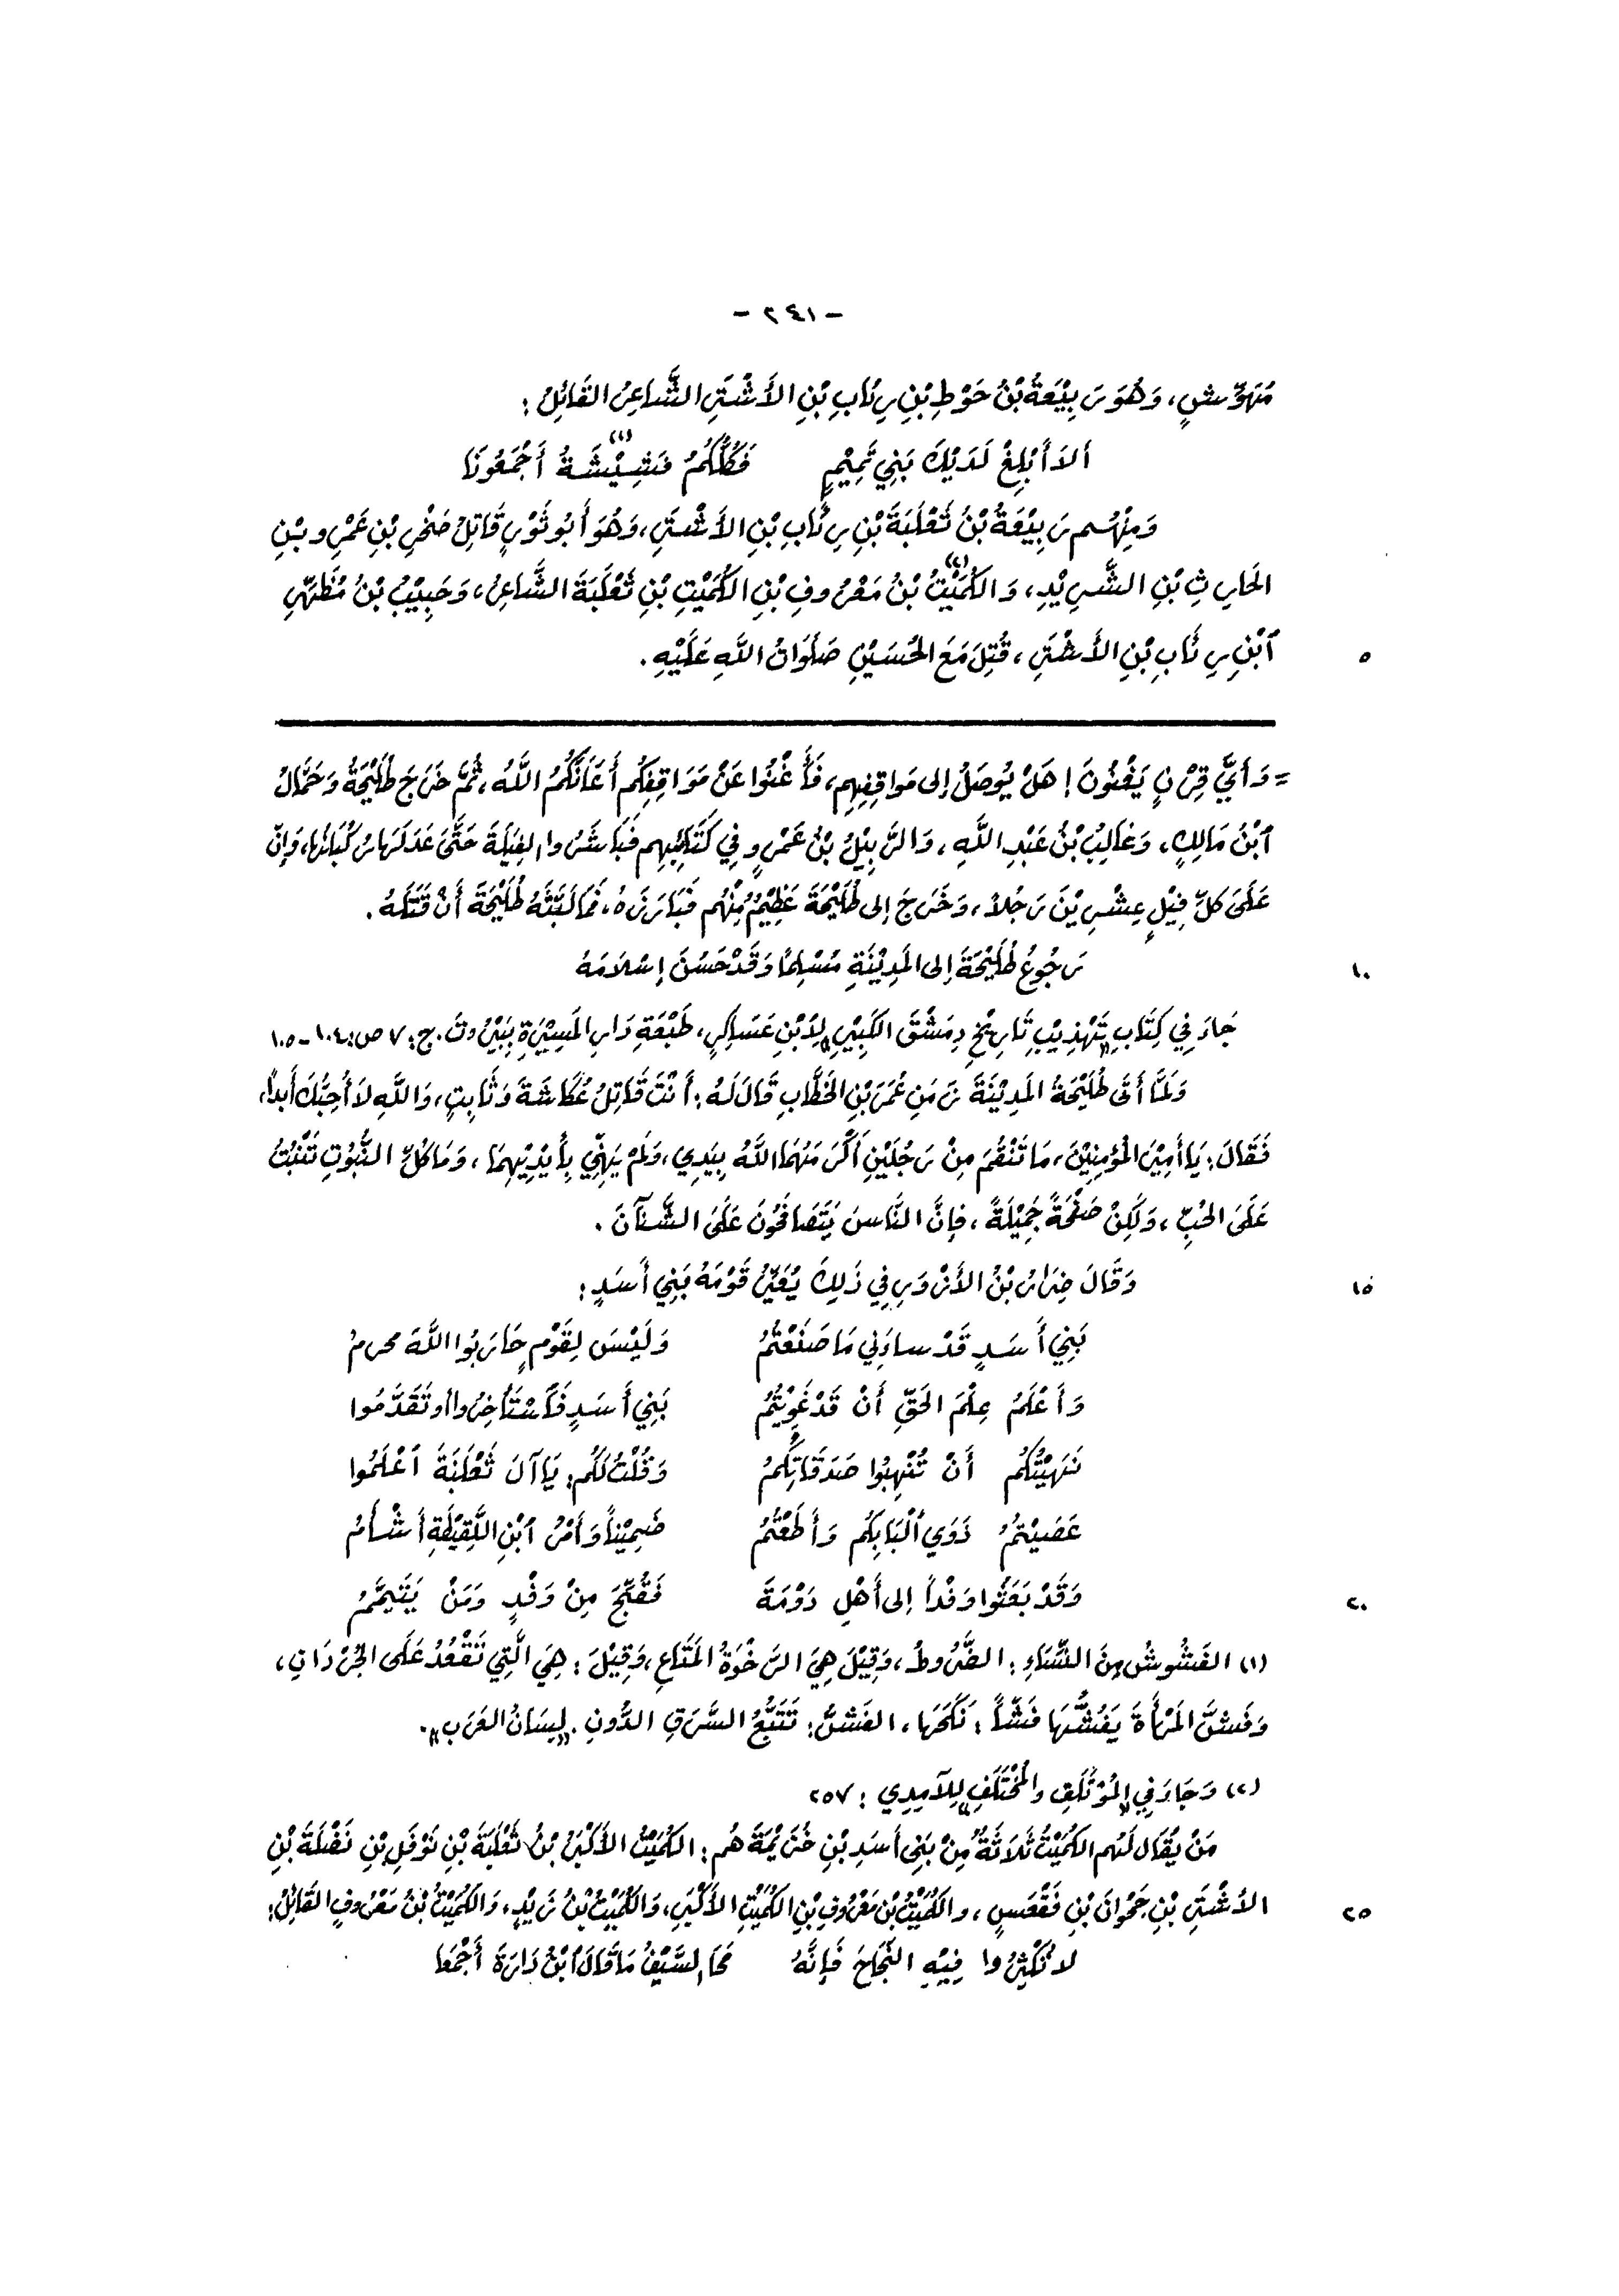 - ٢٤١ -
مُهَوِّشٍ، وَهُوَ رَبِيْعَةُ بْنُ حَوْطِ بْنِ رِئَابِ بْنِ الأَشْتَرِ الشَّاعِرُ القَائِلُ :
أَلاَ أَبْلِغْ لَدَيْكَ بَنِي تَمِيْمٍ فَكُلُّكُمُ فَشِيْشَةُ أَجْمَعُونَا (١)
وَمِنْهُم رَبِيْعَةُ بْنُ ثَعْلَبَةَ بْنِ رِئَابِ بْنِ الأَشْتَرِ، وَهُوَ أَبُو ثَوْرٍ قَاتِلُ صَخْرِ بْنِ عَمْرِو بْنِ
الحَارِثِ بْنِ الشَّرِيْدِ، وَالكُمَيْتُ (٢) بْنُ مَعْرُوفِ بْنِ الكُمَيْتِ بْنِ ثَعْلَبَةَ الشَّاعِرُ، وَحَبِيْبُ بْنُ مُظَهِّرِ
ٱبْنِ رِئَابِ بْنِ الأَشْتَرِ، قُتِلَ مَعَ الحُسَيْنِ صَلَوَاتُ اللَّهِ عَلَيْهِ. ٥
= وَأَيَّ قِرْنٍ يَغْنُونَ! هَلْ يُوصَلُ إلى مَوَاقِفِهِم، فَأَغْنُوا عَنْ مَوَاقِفِكُم أَعَانَكُمُ اللَّهُ، ثُمَّ خَرَجَ طُلَيْحَةُ وَحَمَّالُ
ٱبْنُ مَالِكٍ، وَغَالِبُ بْنُ عَبْدِ اللَّهِ، وَالرَّبِيْلُ بْنُ عَمْرٍو فِي كَتَائِبِهِم فَبَاشَرُوا الفِيَلَةَ حَتَّى عَدَلَهَا رُكْبَانُهَا، وَإِنَّ
عَلَى كُلِّ فِيْلٍ عِشْرِيْنَ رَجُلاً، وَخَرَجَ إلى طُلَيْحَةَ عَظِيْمٌ مِنْهُم فَبَارَزَهُ، فَمَا لَبَّثَهُ طُلَيْحَةَ أَنْ قَتَلَهُ.
رُجُوعُ طُلَيْحَةَ إلى المَدِيْنَةِ مُسْلِماً وَقَدْ حَسُنَ إِسْلاَمَهُ ١٠
جَاءَ فِي كِتَابِ «تَهْذِيْبِ تَارِيْخِ دِمَشْقَ الكَبِيْرِ» لِابْنِ عَسَاكِرٍ، طَبْعَةِ دَارِ المَسِيْرَةِ بِبَيْرُوتَ. ج: ٧ ص: ١٠٤ - ١٠٥
وَلَمَّا أَتَى طُلَيْحَةُ المَدِيْنَةَ زَمَنِ عُمَرَ بْنِ الخَطَّابِ قَالَ لَهُ: أَنْتَ قَاتِلُ عُكَاشَةَ وَثَابِتٍ، وَاللَّهِ لاَ أُحِبُّكَ أَبداً،
فَقَالَ: يَا أَمِيْرَ المُؤمِنِيْنَ، مَا تَنْقُمُ مِنْ رَجُلَيْنِ أَكْرَمَهُمَا اللَّهُ بِيَدِي، وَلَمْ يُهِنِّي بِأَيْدِيْهِمَا، وَمَا كُلُّ البُيُوتِ تُنْبُتُ
عَلَى الحُبِّ، وَلَكِنْ صَفْحَةً جَمِيْلَةً، فَإِنَّ النَّاسَ يَتَصَافَحُونَ عَلَى الشَّنَآنَ.
وَقَالَ ضِرَارُ بْنُ الأَزْوَرِ فِي ذَلِكَ يُعَيِّرُ قَوْمَهُ بَنِي أَسَدٍ: ١٥
بَنِي أَسَدٍ قَدْ سَاءَنِي مَا صَنَعْتُمُ وَلَيْسَ لِقَوْمٍ حَارَبُوا اللَّهَ محرمُ
وَأَعْلَمُ عِلْمَ الحَقِّ أَنْ قَدْ غَوِيْتُمُ بَنِي أَسَدٍ فَاسْتَأخِرُوا أو تَقَدَّمُوا
نَهَيْتُكُم أَنْ تُنْهِبُوا صَدَقَاتِكُمُ وَقُلْتُ لَكُم: يَا آلَ ثَعْلَبَةَ ٱعْلَمُوا
عَصَيْتُمُ ذَوَي أَلْبَابِكُم وَأَطَعْتُمُ ضَمِيْناً وَأَمْرُ ٱبْنِ اللَّقِيْطَةِ أَشْأَمُ
وَقَدْ بَعَثُوا وَفْداً إلى أَهْلِ دَوْمَةَ فَقُبِّحَ مِنْ وَفْدٍ وَمَنْ يَتَيَمَّمُ ٢٠
(١) الفَشُوشُ مِنَ النِّسَاءِ: الضَّرُوطُ، وَقِيْلَ هِيَ الرَّخْوَةُ المَتَاعِ، وَقِيْلَ: هِيَ الَّتِي تَقْعُدُ عَلَى الجُرْدَانِ،
وَفَشَّ المَرْأَةَ يَفُشُّهَا فَشّاً: نَكَحَهَا، الفَشُّ: تَتَبُّعُ السَّرَقِ الدُّونِ. «لِسَانُ العَرَبِ».
(٢) وَجَاءَ فِي «المُؤتَلَفِ والمُخْتَلَفِ» لِلآمِدِي: ٢٥٧
مَنْ يُقَال لَهُم الكُمَيْتُ ثَلاَثَةٌ مِنْ بَنِي أَسَدِ بْنِ خُزَيْمَةَ هُم: الكُمَيْتُ الأَكْبَرُ بْنُ ثَعْلَبَةَ بْنِ نَوْفَلِ بْنِ نَضْلَةَ بْنِ
الأَشْتَرِ بْنِ جَحْوَانَ بْنِ فَقْعَسٍ، والكُمَيْتُ بْنُ مَعْرُوفِ بْنِ الكُمَيْتِ الأَكْبَرِ، وَالكُمَيْتُ بْنُ زَيْدٍ، وَالكُمَيْتُ بْنُ مَعْرُوفٍ القَائِلُ: ٢٥
لا تُكْثِرُوا فِيْهِ الضَّجَاجَ فَإِنَّهُ مَحَا السَّيْفُ مَا قَالَ ٱبْنُ دَارَةَ أَجْمَعَا